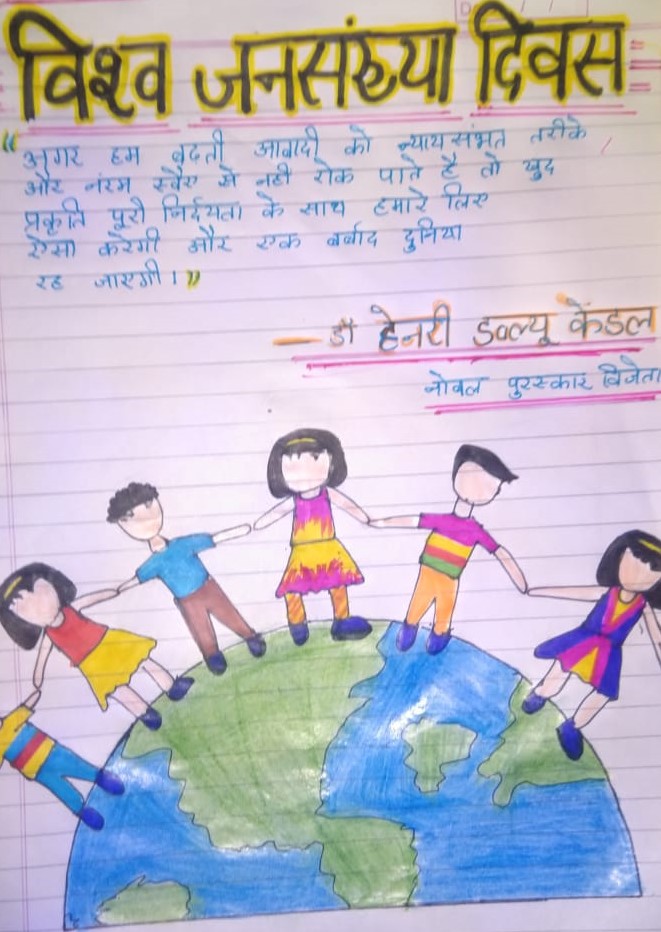 विश्व जनसंख्या दिवस
“अगर हम बढ़ती आबादी को न्यायसंगत तरीके
और नरम स्वैए से नहीं रोक पाते है तो खुद
प्रकृति पूरी निर्दयता के साथ हमारे लिए
ऐसा करेगी और एक बर्बाद दुनिया
रह जाएगी।”
— डॉ हेनरी डब्ल्यू केंडल
नोबल पुरस्कार विजेता